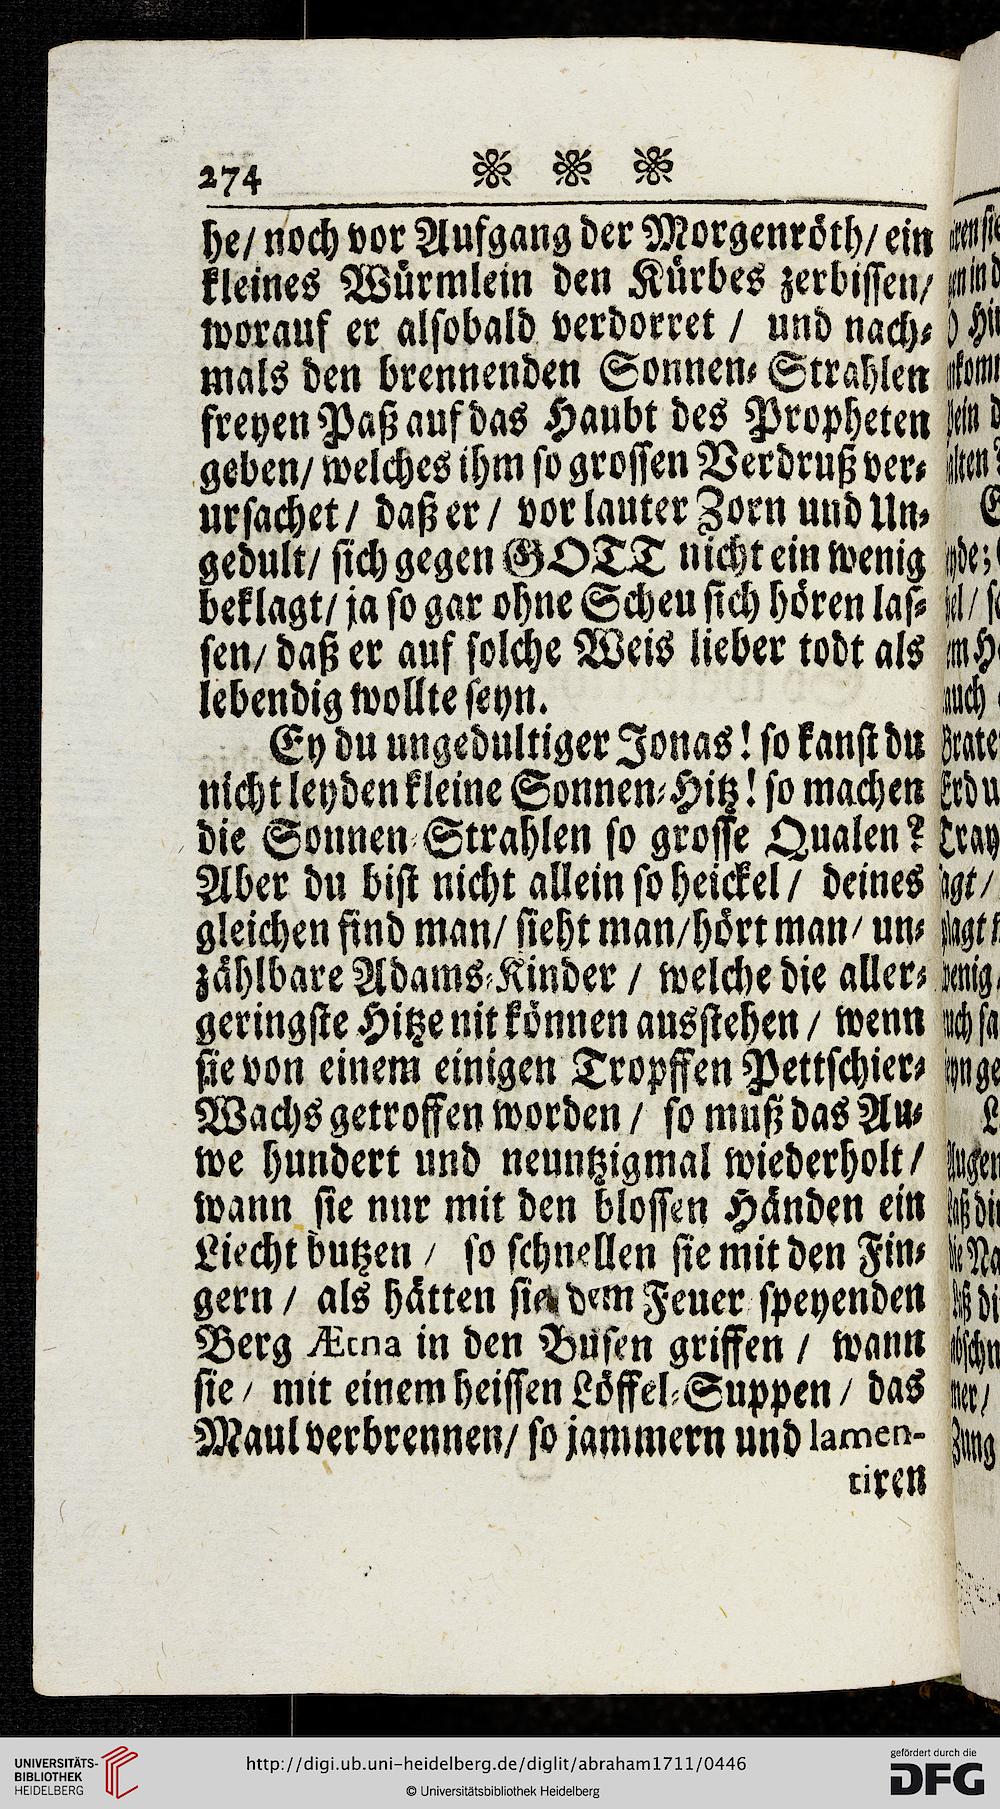 274
he/ noch vor Aufgang der Morgenröth/ ein
kleines Würmlein den Kürbes zerbissen/
worauf er alsobald verdorret / und nach-
mals den brennenden Sonnen-Strahlen
freyen Paß auf das Haubt des Propheten
geben/ welches ihm so grossen Verdruß ver-
ursachet / daß er / vor lauter Zorn und Un-
gedult/ sich gegen GOTT nicht ein wenig
beklagt/ ja so gar ohne Scheu sich hören las-
sen/ daß er auf solche Weis lieber todt als
lebendig wollte seyn.
Ey du ungedultiger Jonas! so kanst du
nicht leyden kleine Sonnen-Hitz! so machen
die Sonnen-Strahlen so grosse Qualen?
Aber du bist nicht allein so heickel / deines
gleichen find man/ sieht man/ hört man/ un-
zählbare Adams-Kinder / welche die aller-
geringste Hitze nit können ausstehen / wenn
sie von einem einigen Tropffen Pettschier-
Wachs getroffen worden / so muß das Au-
we hundert und neuntzigmal wiederholt /
wann sie nur mit den blossen Händen ein
Liecht butzen / so schnellen sie mit den Fin-
gern / als hätten sie dem Feuer speyenden
Berg Ætna in den Busen griffen / wann
sie / mit einem heissen Löffel-Suppen / das
Maul verbrennen/ so jammern und lamen-
tiren
UNIVERSITÄTS-
BIBLIOTHEK
HEIDELBERG
http://digi.ub.uni-heidelberg.de/diglit/abraham1711/0446
© Universitätsbibliothek Heidelberg
gefördert durch die
DFG